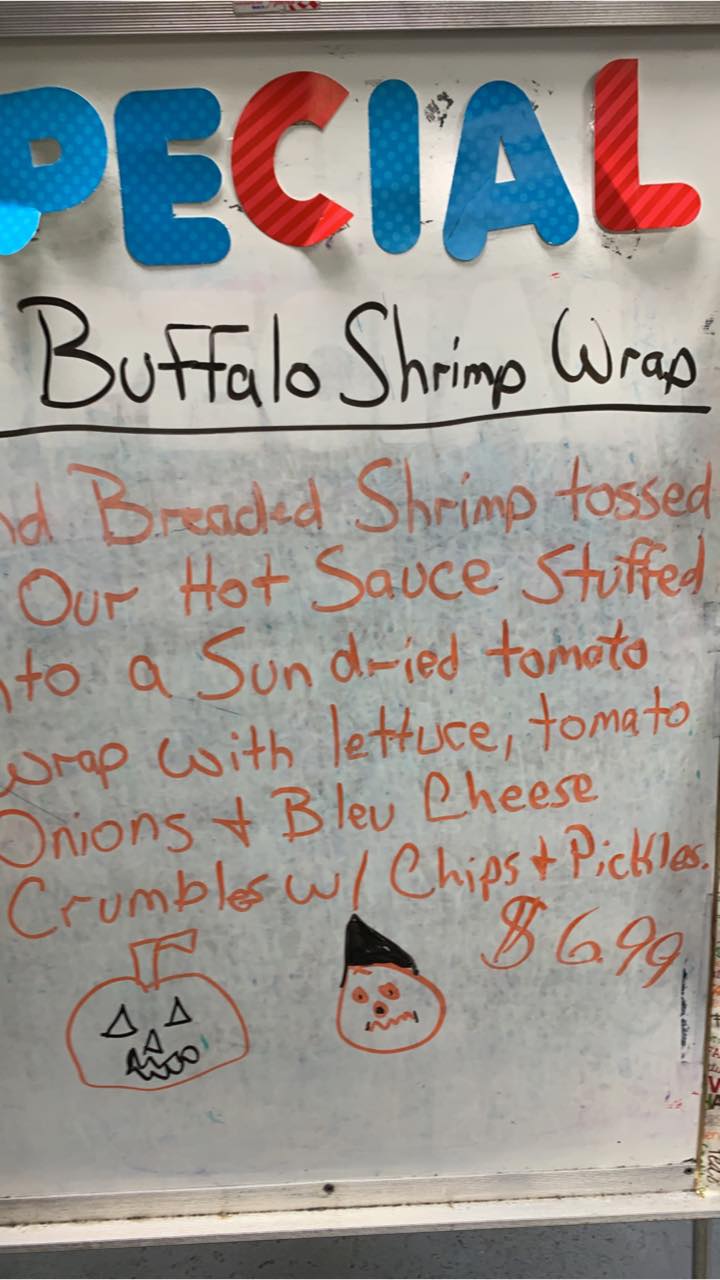 PECIAL
Buffalo Shrimp Wrap
nd Breaded Shrimp tossed
Our Hot Sauce Stuffed
nto a Sun dried tomato
wrap with lettuce, tomato
Onions & Bleu Cheese
Crumbles w/ Chips & Pickles.
$6.99